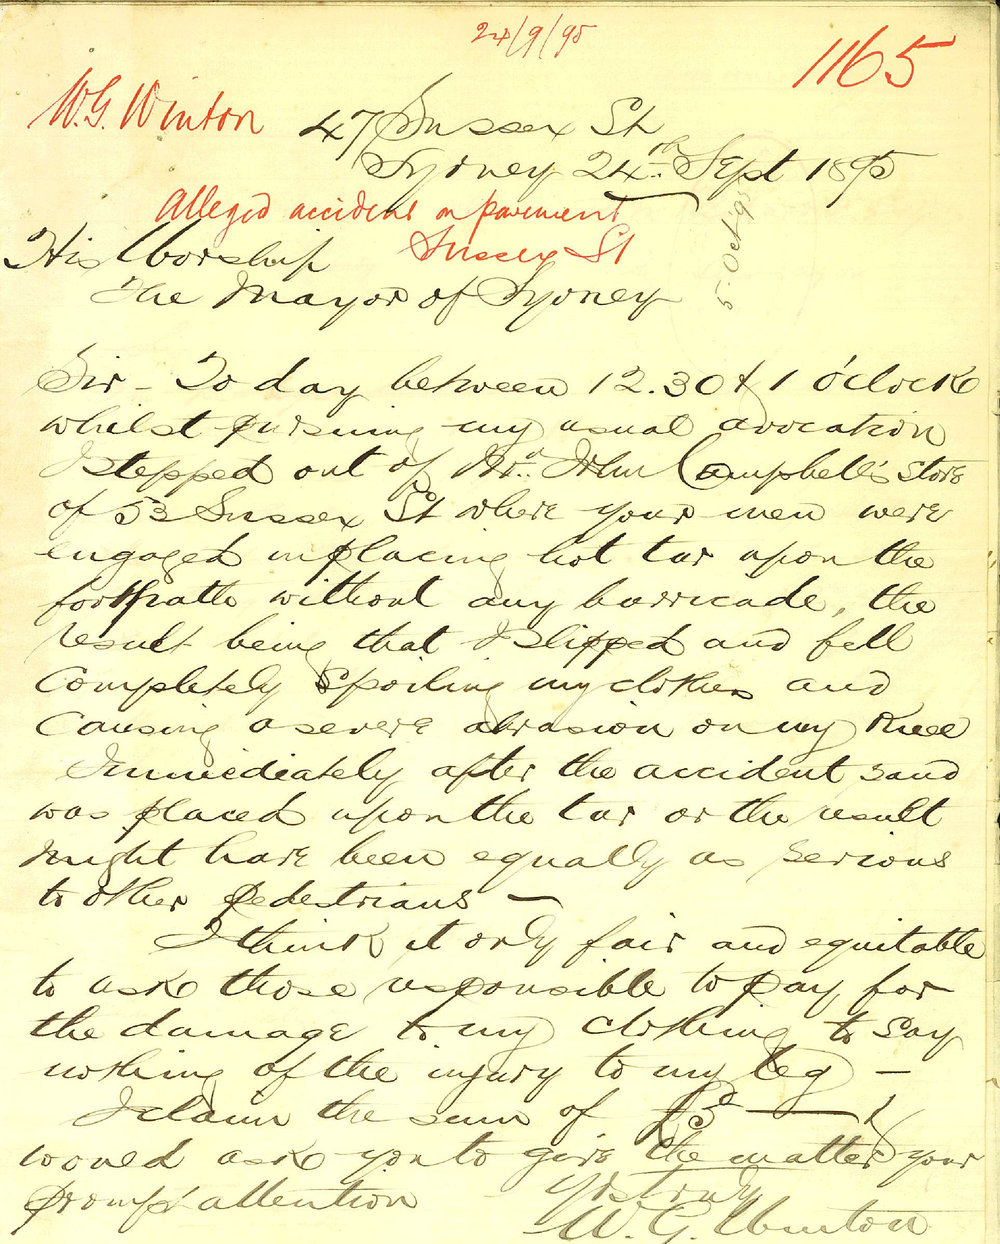 24/9/95
1165
W.G. Winton
47 Sussex St
Sydney 24th Sept 1895
Alleged accident on pavement
Sussex St
5. Oct. 95
His Worship
The Mayor of Sydney
Sir - To day between 12.30 & 1 o'clock
whilst pursuing my usual avocation
I stepped out of John Campbell's store
of 53 Sussex St where your men were
engaged in placing hot tar upon the
footpath without any barricade, the
result being that I slipped and fell
completely spoiling my clothes and
causing a severe abrasion on my knee
Immediately after the accident sand
was placed upon the tar or the result
might have been equally as serious
to other pedestrians -
I think it only fair and equitable
to ask those responsible to pay for
the damage to my clothing to say
nothing of the injury to my leg -
I claim the sum of £3 - I
would ask you to give the matter your
prompt attention
Yrs truly
W. G. Winton